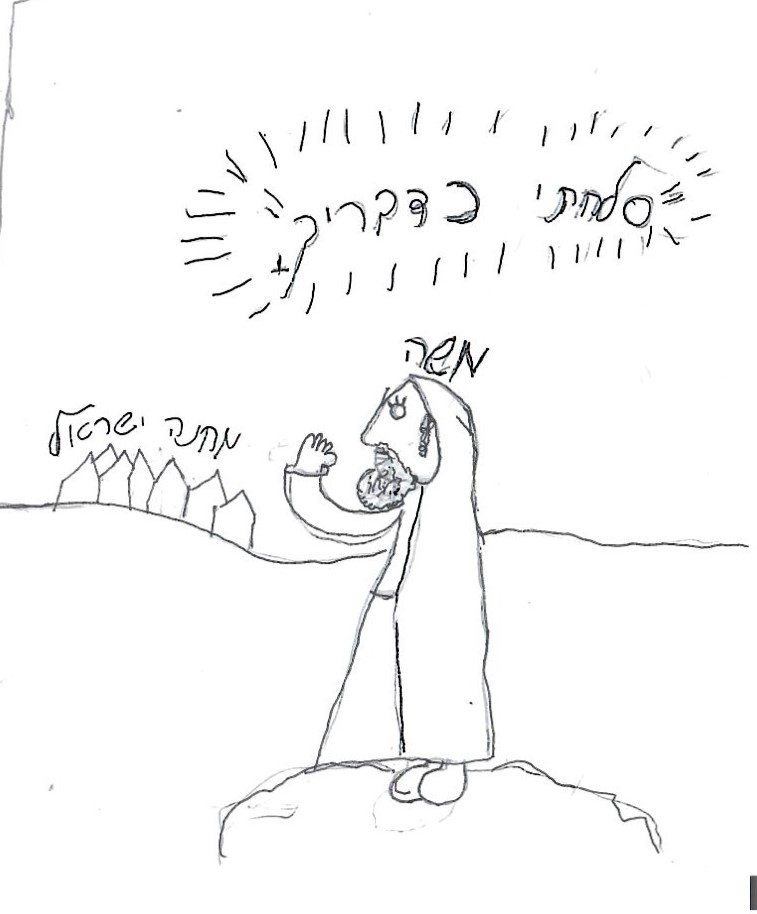 סלחתי כדבריך
משה
מחנה ישראל